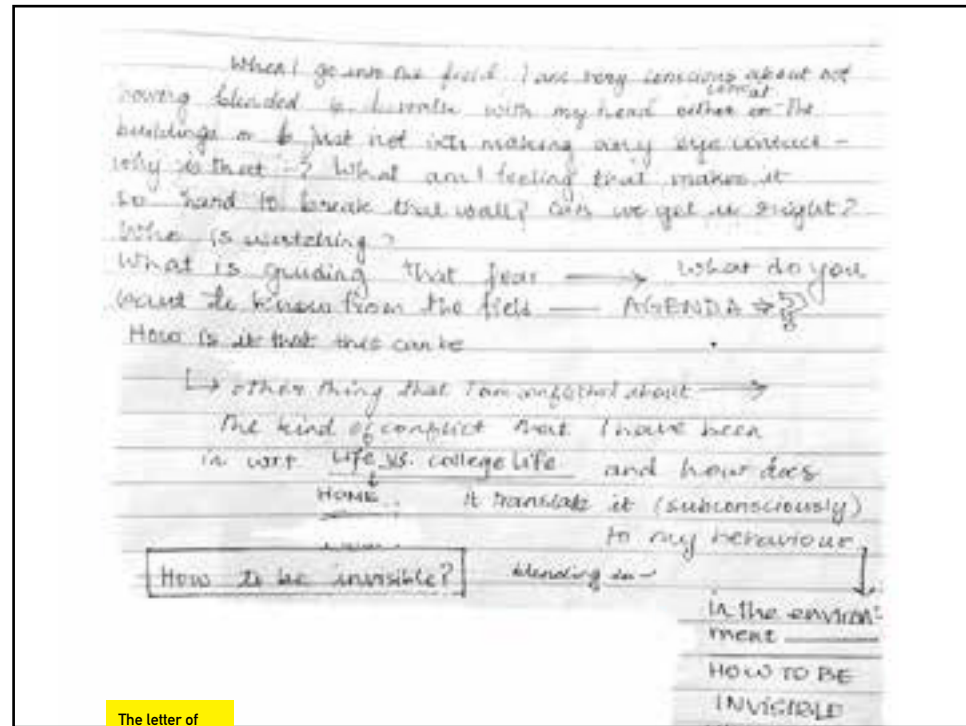 When I go into the field, I am very conscious about not
having blended & I walk with my head either at the
buildings or & just not making any eye contact –
why is that –? What am I feeling that makes it
so hard to break that wall? Can we get it right?
Who is watching?
What is guiding that fear → What do you
want to know from the field — AGENDA
How is it that this can be
↳ other thing that I am about →
The kind of conflict that I have been
in wrt Life vs. college life and how does
HOME it translate it (subconsciously)
to my behaviour
How to be invisible? blending in
in the environ-
ment
HOW TO BE
INVISIBLE
The letter of